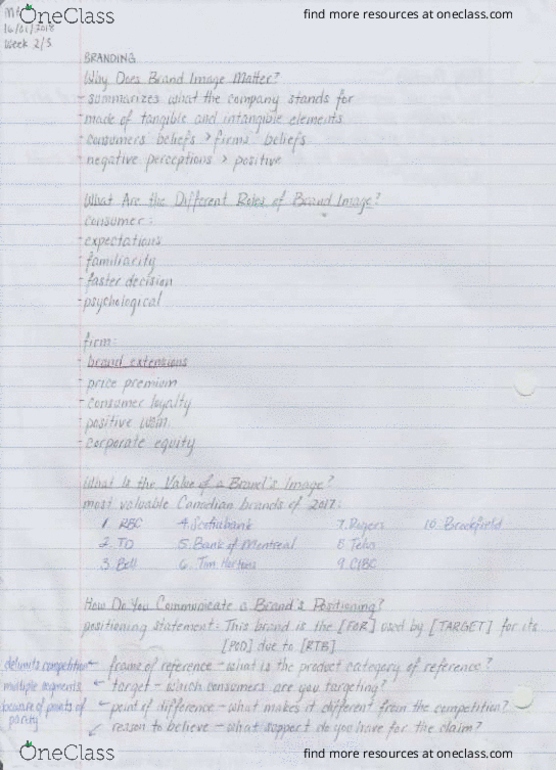 OneClass
find more resources at oneclass.com
16/01/2018
Week 2/3
BRANDING
Why Does Brand Image Matter?
- summarizes what the company stands for
- made of tangible and intangible elements
- consumers beliefs > firms beliefs
- negative perceptions > positive
What Are the Different Roles of Brand Image?
consumer:
- expectations
- familiarity
- faster decision
- psychological
firm:
- brand extensions
- price premium
- consumer loyalty
- positive WOM
- corporate equity
What Is the Value of a Brand's Image?
most valuable Canadian brands of 2017:
1. RBC 4. Scotiabank 7. Rogers 10. Brookfield
2. TD 5. Bank of Montreal 8 Telus
3. Bell 6. Tim Hortons 9. CIBC
How Do You Communicate a Brand's Positioning?
positioning statement: This brand is the [FOR] used by [TARGET] for its
[POD] due to [RTB]
delimits competition ← frame of reference - what is the product category of reference?
multiple segments ↙ target - which consumers are you targeting?
beware of points of parity ← point of difference - what makes it different from the competition?
↙ reason to believe - what support do you have for the claim?
OneClass
find more resources at oneclass.com